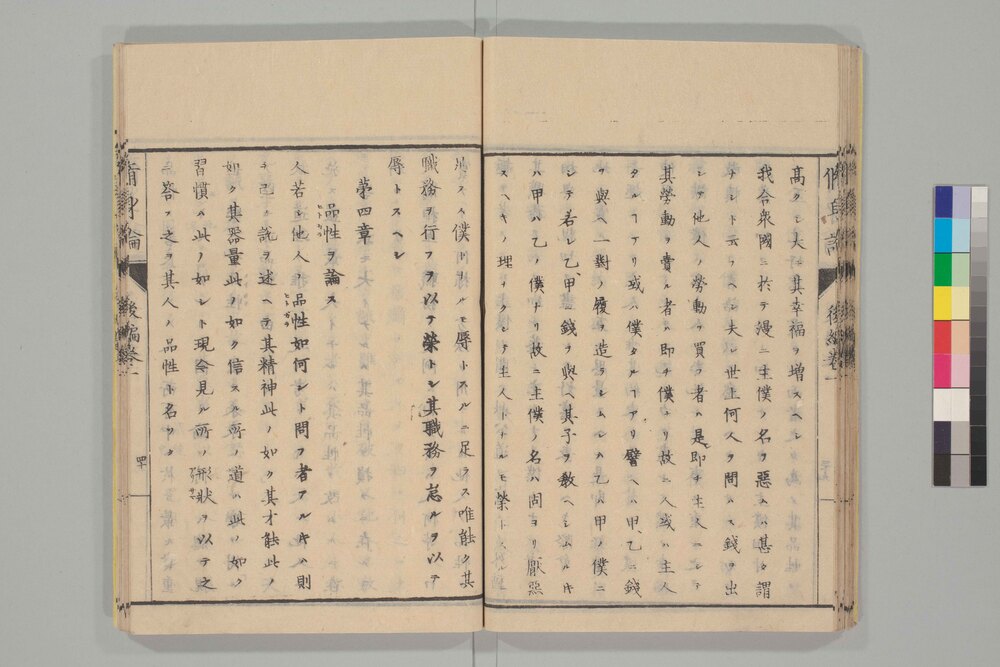 高クシ大ニ其幸福ヲ増スベシ
我合衆國ニ於テ漫ニ主僕ノ名ヲ惡ムハ甚タ謂
ナシト云フヘシ夫レ世上何人ヲ問ハス錢ヲ出
シテ他人ノ勞動ヲ買フ者ハ是即チ主人ニシテ
其勞動ヲ賣ル者ハ即チ僕ナリ故ニ人或ハ主人
タルアリ或ハ僕タルアリ譬ヘハ甲乙ニ錢
ヲ與ヘ一對ノ履ヲ造ラシムレハ乙ハ甲ノ僕ニ
シテ若シ乙甲ニ錢ヲ與ヘ其子ヲ教ヘシムルキ
ハ甲ハ乙ノ僕ナリ故ニ主僕ノ名ハ固ヨリ厭惡
スヘキノ理ナクシテ主人トナルモ榮トスルニ
足ラス僕トナルモ辱トスルニ足ラス唯能ク其
職務ヲ行フヲ以テ榮トシ其職務ヲ怠ルヲ以テ
辱トスヘシ
第四章
品性ヲ論ス
人若シ他人ノ品性如何ント問フ者アルキハ則
チ己レ説ヲ述ヘテ其精神此ノ如ク其才能此ノ
如ク其器量此ノ如ク信スル所ノ道ハ此ノ如ク
習慣ハ此ノ如シト現今見ル所ノ形狀ヲ以テ之
ニ答フ之ヲ其人ノ品性ト名ク
脩身論
後編卷一
四十